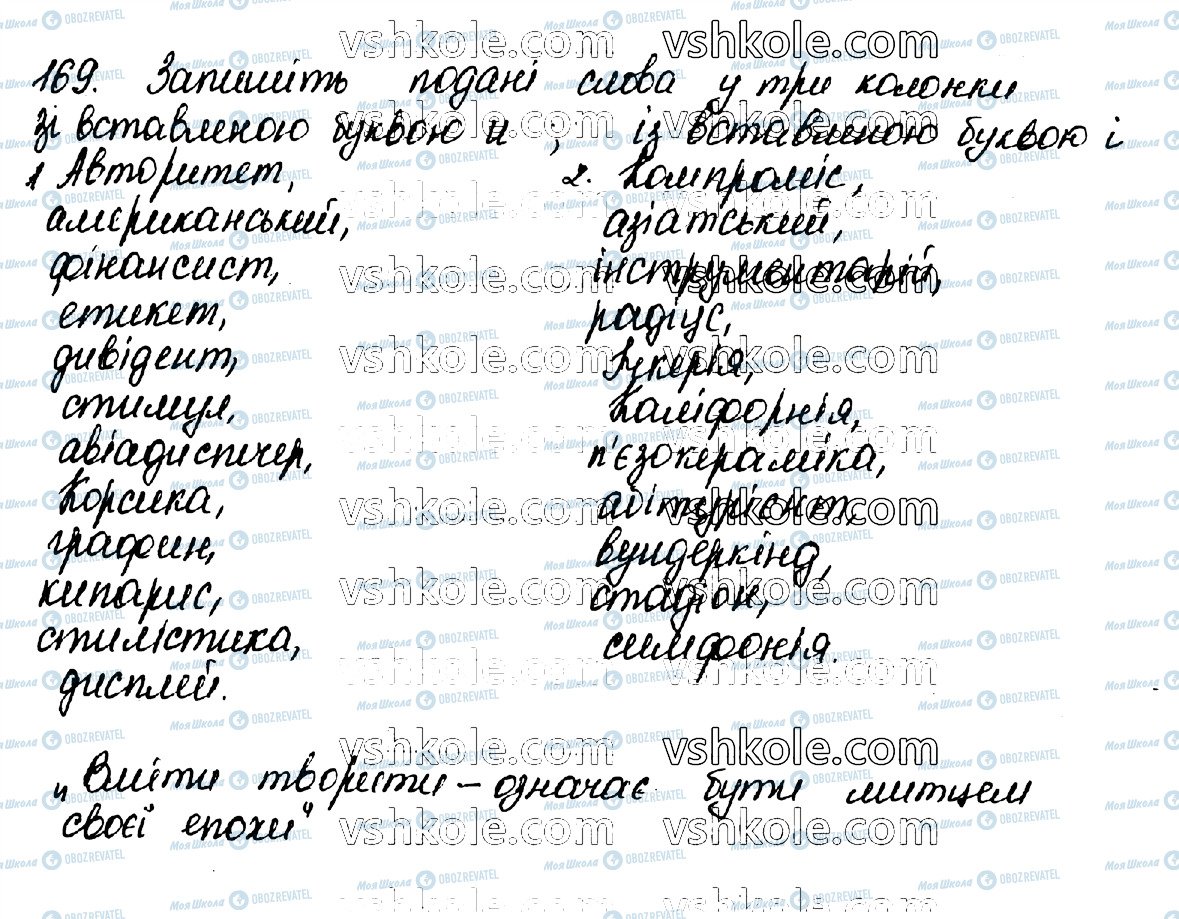 169. Запишіть подані слова у три колонки
зі вставленою буквою и ; із вставленою буквою і
1 Авторитет,
американський,
фінансист,
етикет,
дивідент,
стимул,
авіадиспічер,
Корсика,
графин,
кипарис,
стилістика,
дисплей.
2. Компроміс,
азіатський,
інструментарій,
радіус,
Каліфорнія,
п'єзокераміка,
абітурієнт,
вундеркінд,
стадіон,
симфонія.
"Вміти творити – означає бути митцем
своєї епохи"
vshkole.com
МояШкола OBOZREVATEL